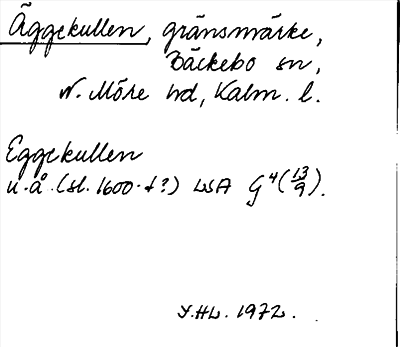 Äggekullen, gränsmärke,
Bäckebo sn,
N. Möre hd, Kalm. l.
Eggekullen
u.å. (sl. 1600-t?) LSA G⁴ (13/9).
Y.HL. 1972.